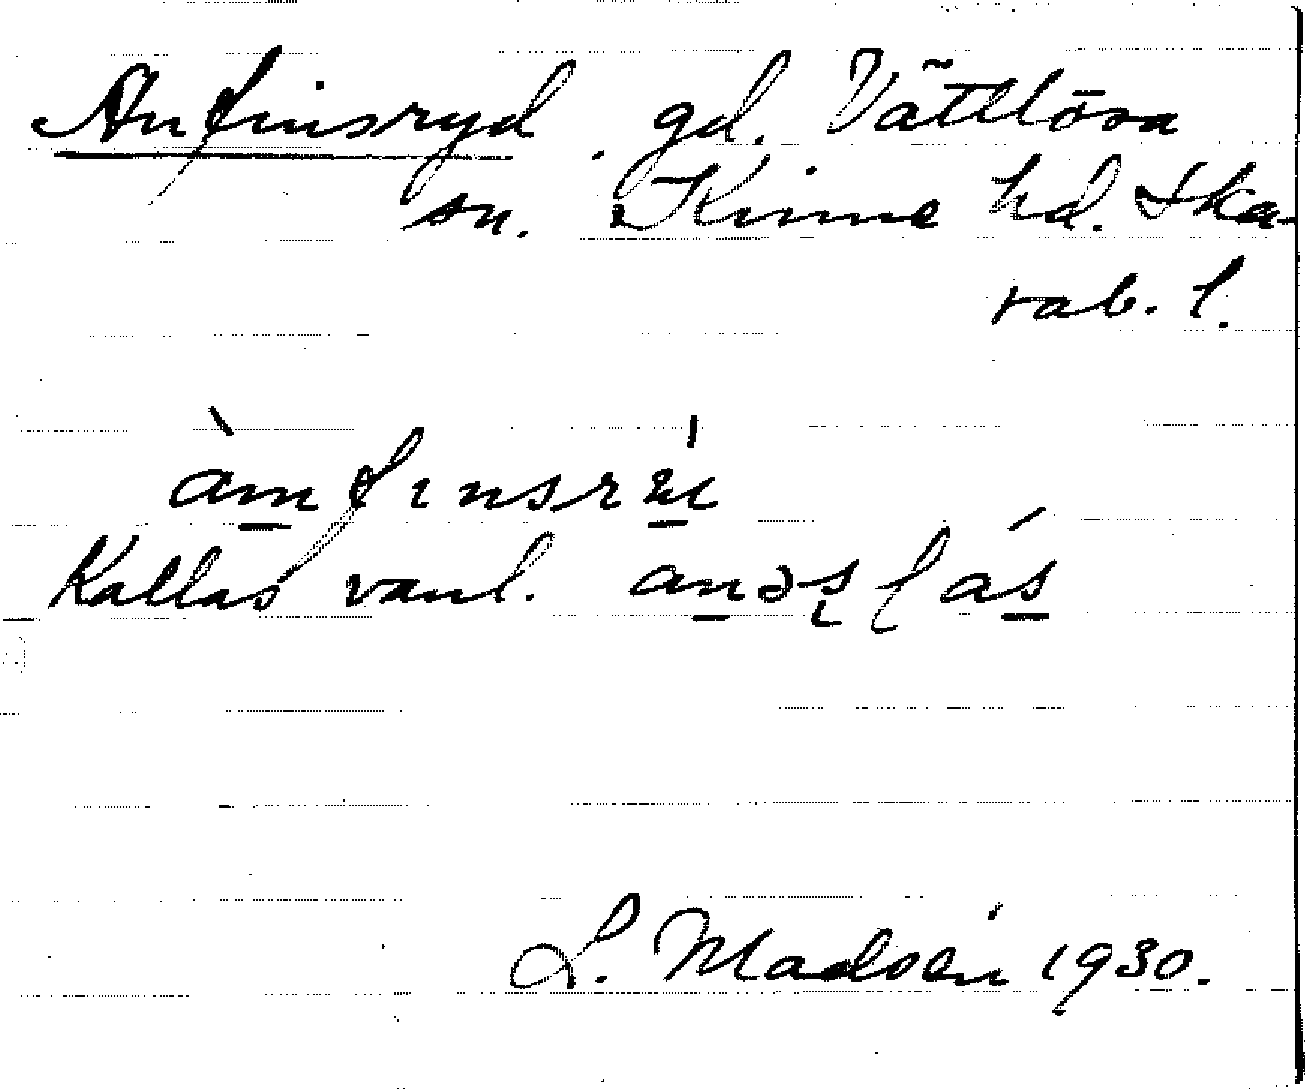 Anfinsryd. gd. Vättlösa
sn. Kinne hd. Ska-
rab. l.
àmfinsrú
Kallas vanl. anəslás
L. Madsén 1930.